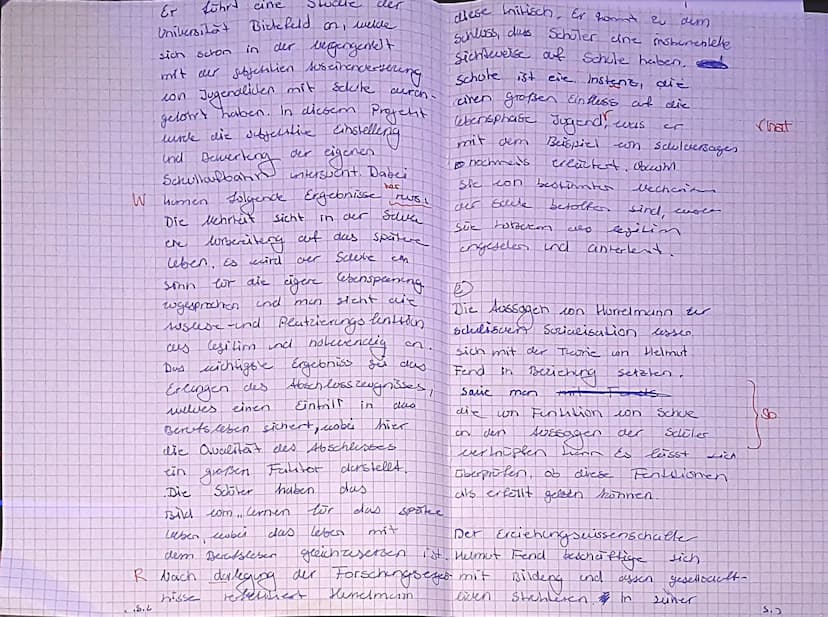 Er führt eine Studie der
Universität Bielefeld an, welche
sich schon in der Vergangenheit
mit der subjektiven Auseinandersetzung
von Jugendlichen mit Schule durch-
geführt haben. In diesem Projekt
wurde die subjektive Einstellung
und Bewertung der eigenen
Schullaufbahn untersucht. Dabei
W kamen folgende Ergebnisse raus.
Die Mehrheit sieht in der Schule
eine Vorbereitung auf das spätere
Leben, es wird der Schule ein
Sinn für die eigene Lebensplanung
zugesprochen und man sieht die
und Platzierungsfunktion
als legitim und notwendig an.
Das wichtigste Ergebniss sei das
Erlangen des Abschlusszeugnisses,
welches einen Eintritt in das
Berufsleben sichert, wobei hier
die Qualität des Abschlusses
ein großen Faktor darstellt.
Die Schüler haben das
Bild vom „lernen für das spätere
Leben, wobei das Leben mit
dem Berufsleben gleichzusetzen ist.
R Nach darlegung der Forschungsergeb-
nisse reflektiert Hurrelmann
S.2
diese kritisch. Er kommt zu dem
Schluss, dass Schüler eine instrumentelle
Sichtweise auf Schule haben.
Schule ist eine Instanz, die
einen großen Einfluss auf die
Lebensphase Jugend, was er
√hat
mit dem Beispiel von Schulversagen
nochmals erläutert. Obwohl
sie von bestimmten
der Schule betroffen sind,
sie trotzdem als legitim
angesehen und anerkannt.
2)
Die Aussagen von Hurrelmann zur
schulischen Sozialisation lassen
sich mit der Theorie von Helmut
Fend in Beziehung setzten.
man
die von Funktion von Schule
an den Aussagen der Schüler
Sb
verknüpfen kann Es lässt sich
überprüfen, ob diese Funktionen
als erfüllt gelten können.
Der Erziehungswissenschaftler
Helmut Fend beschäftige sich
mit Bildung und dessen gesellschaft-
lichen Strukturen. In seiner